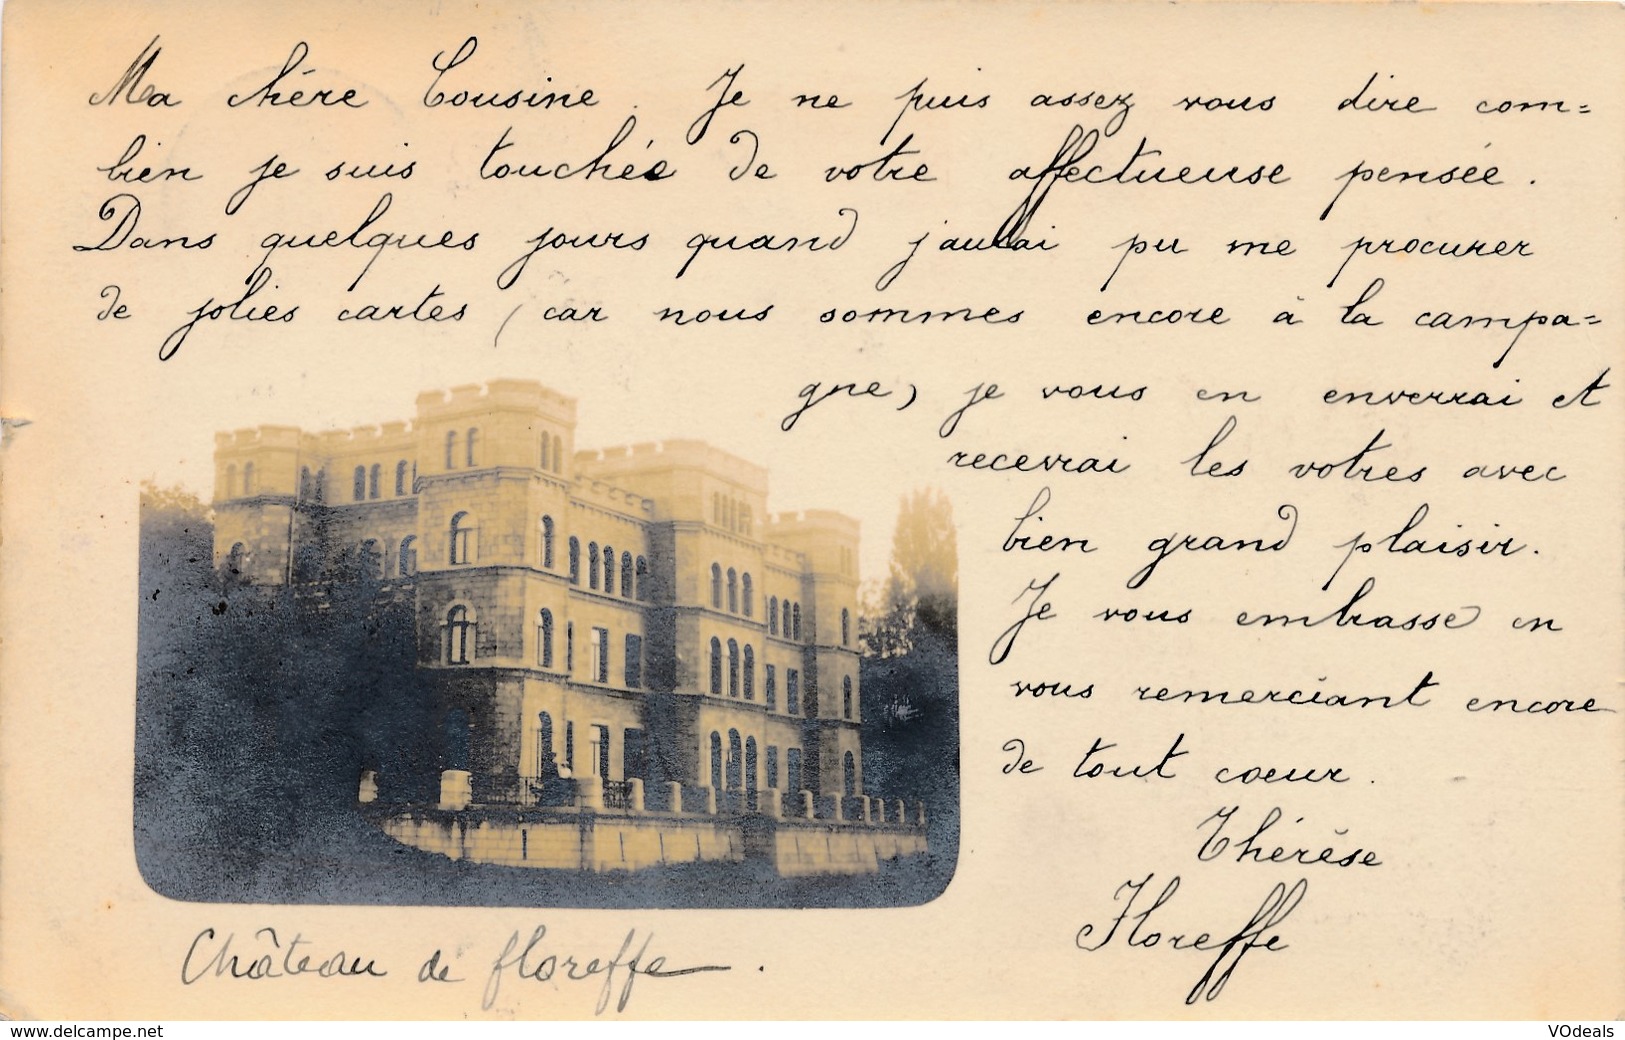 Ma chère Cousine. Je ne puis assez vous dire com=
bien je suis touchée de votre affectueuse pensée.
Dans quelques jours quand j'aurai pu me procurer
de jolies cartes (car nous sommes encore à la campa=
gne) je vous en enverrai et
recevrai les votres avec
bien grand plaisir.
Je vous embrasse en
vous remerciant encore
de tout coeur.
Thérèse
Floreffe
Château de floreffe.
www.delcampe.net
VOdeals